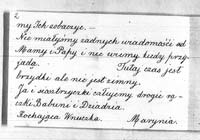 2
my Ich zobaczyć. –
Nie mieliśmy żadnych wiadomość od
Mamy i Papy i nie wiemy kiedy przy-
jadą. Tutaj czas jest
brzydki ale nie jest zimny.
Ja i siostrzyczki całujemy drogie rą-
czki Babuni i Dziadzia.
Kochająca Wnuczka. Marynia.